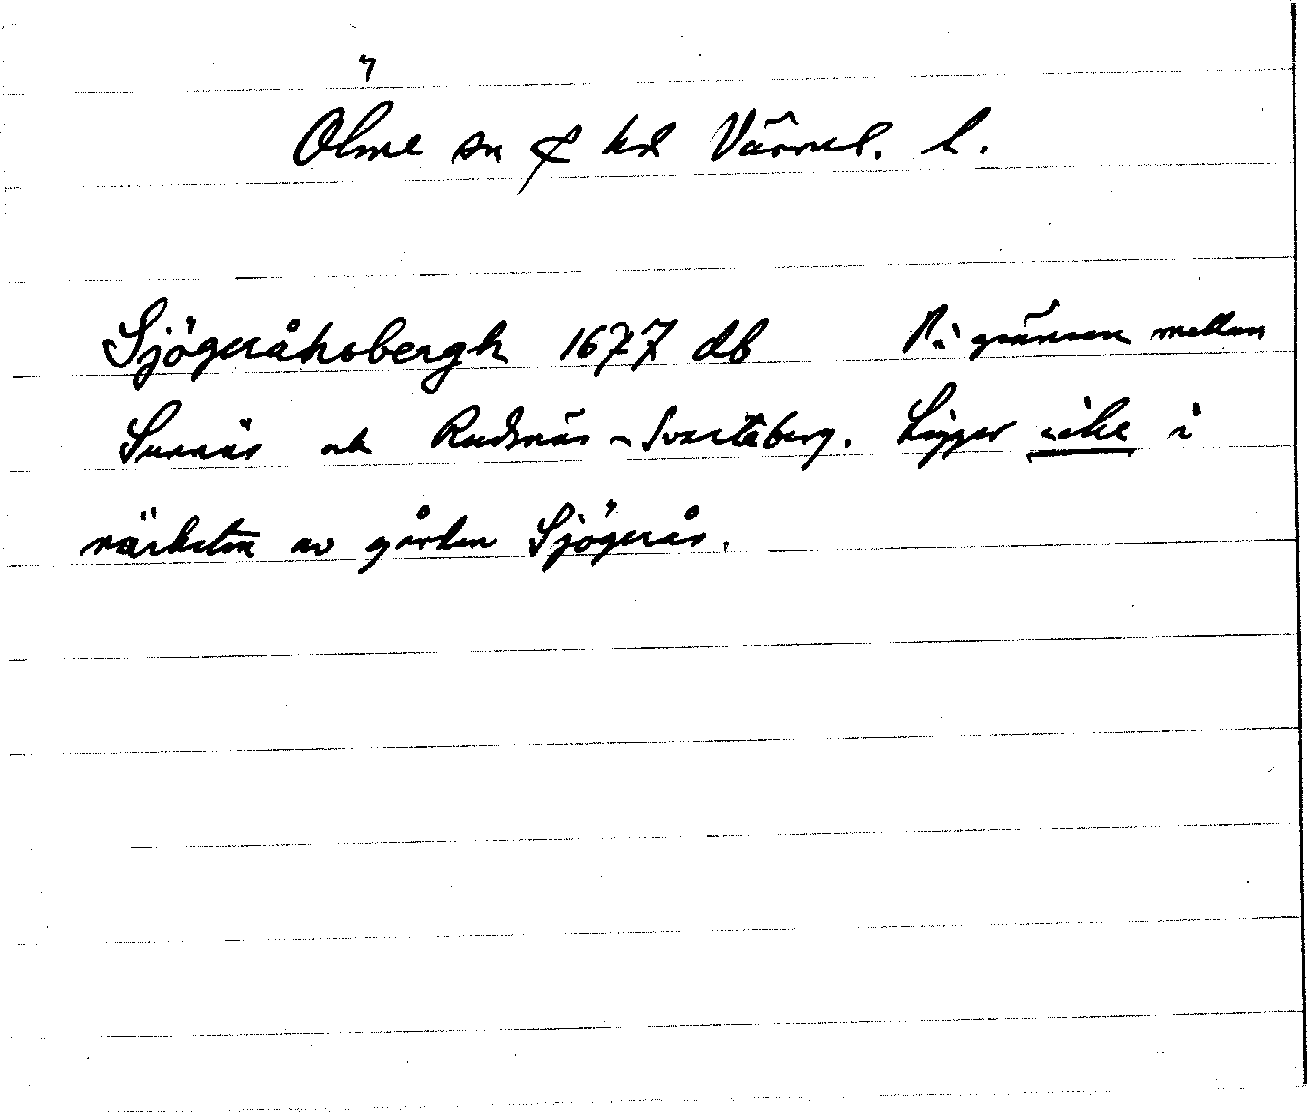 Ölme sn & hd Värml. l.
Sjögeråhsbergh 1677 db På gränsen mellan
Sunnäs och Rudsnäs - Svartåberg. Ligger icke i
närheten av gården Sjögerås.